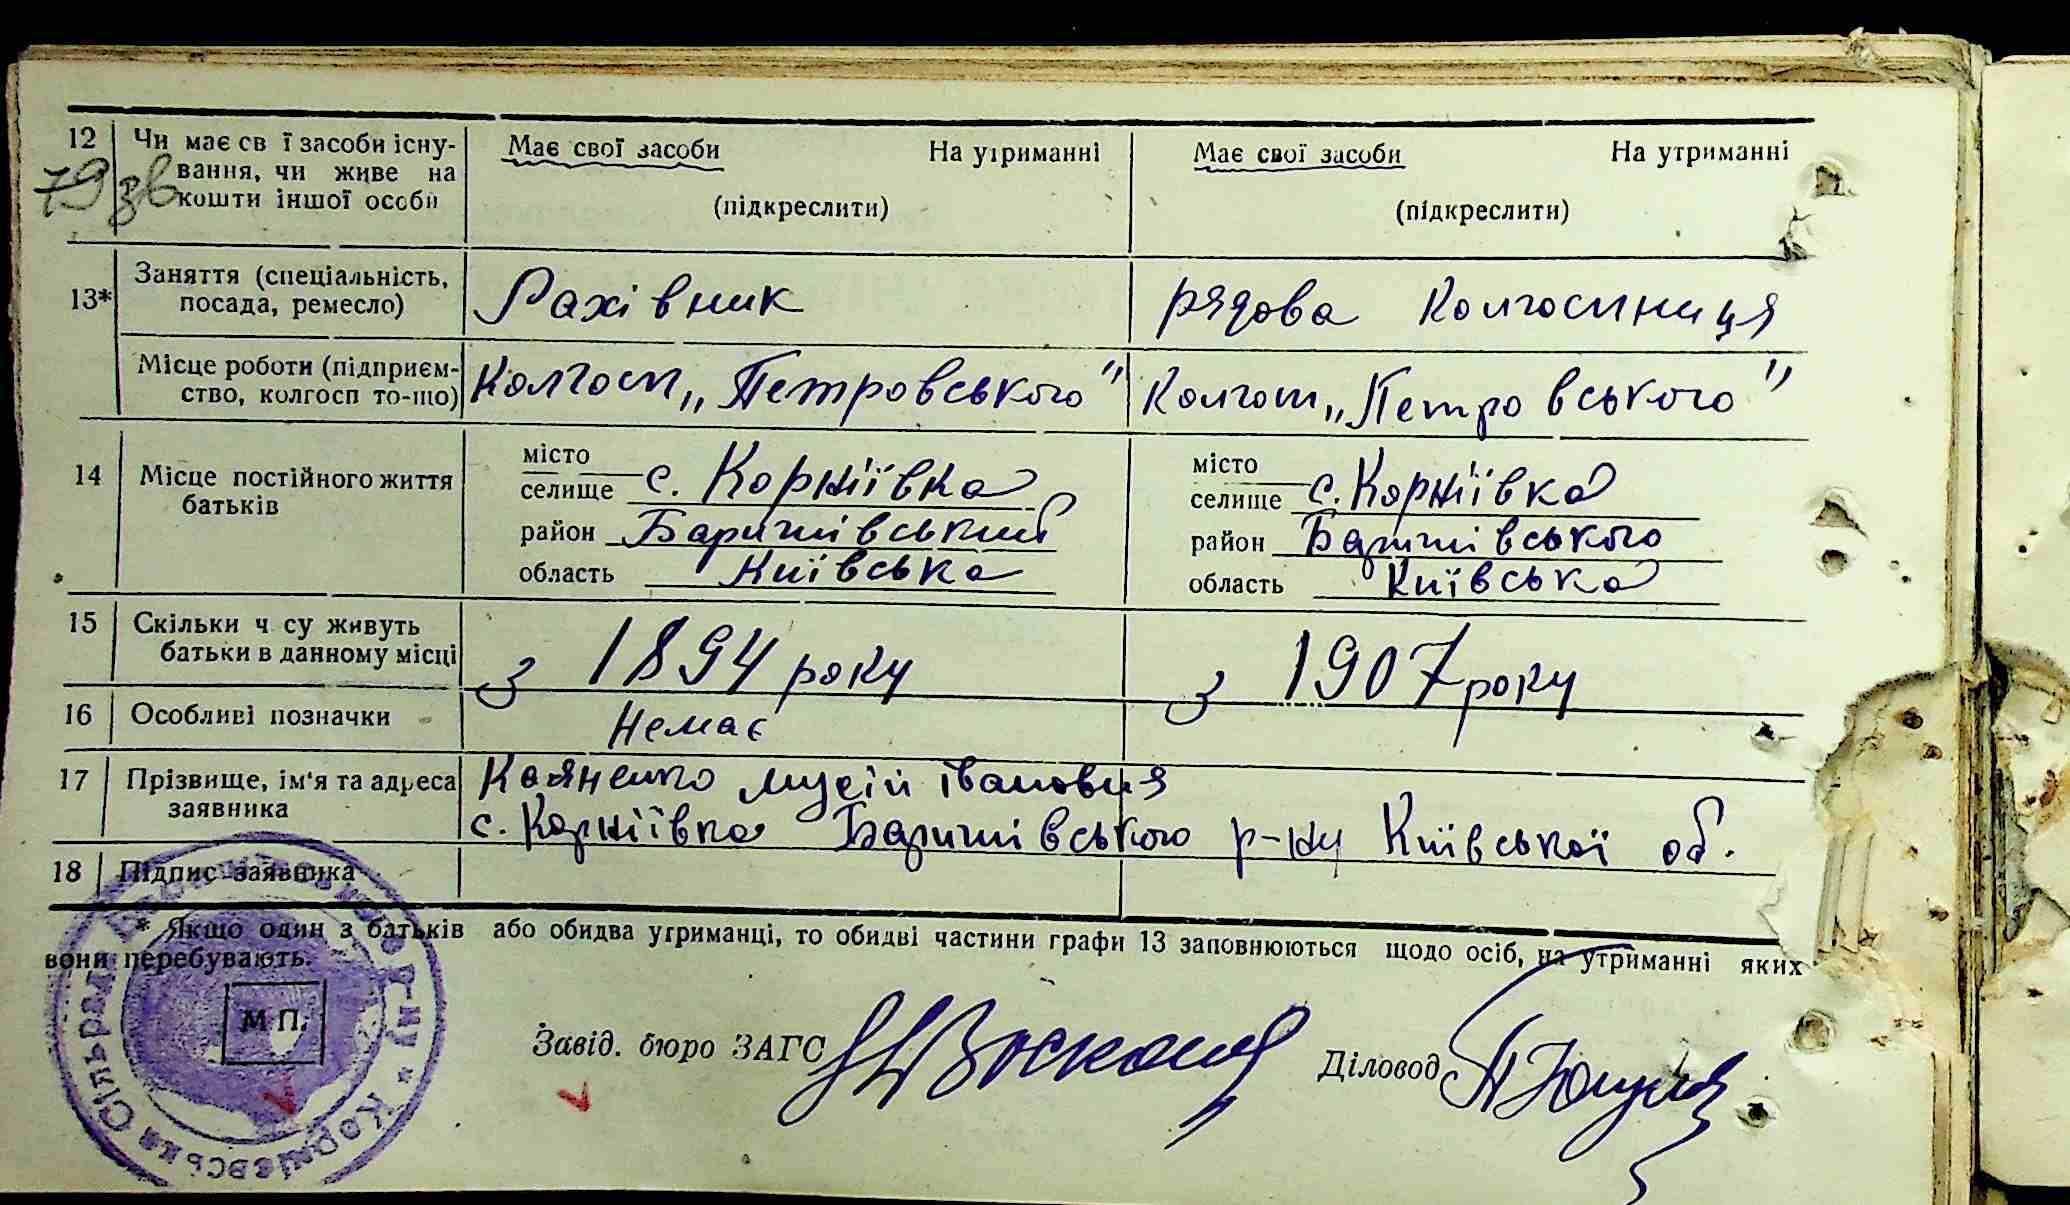 12 Чи має св ї засоби існу- Має свої засоби На утриманні Має свої засоби На утриманні
79 зв вання, чи живе на
кошти іншої особи (підкреслити) (підкреслити)
13* Заняття (спеціальність, посада, ремесло) Рахівник рядова колгоспниця
Місце роботи (підприєм-ство, колгосп то-що) Колгосп „Петровського" Колгосп „Петровського"
14 Місце постійного життя батьків
місто селище с. Корніївка місто селище с. Корніївка
район Баришівський район Баришівського
область Київська область Київська
15 Скільки ч су живуть батьки в данному місці з 1894 року з 1907 року
16 Особливі позначки Немає
17 Прізвище, ім'я та адреса заявника Мусій Іванович
с. Корніївка Баришівського р-ну Київської об.
18 Підпис заявника
* Якщо один з батьків або обидва утриманці, то обидві частини графи 13 заповнюються щодо осіб, на утриманні яких
вони перебувають.
М П.
Завід. бюро ЗАГС Діловод
Корніївська Сільрада